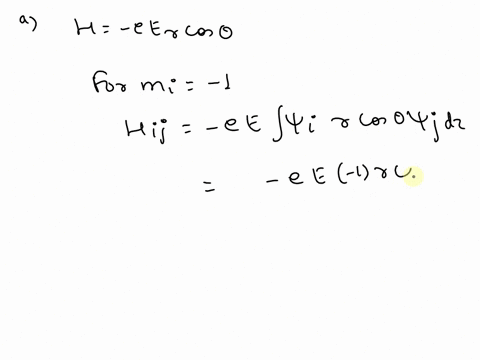 a) H = -eEr cosθ
For mi = -1
Hij = -eE ∫ψi r cosθ ψj dr
= -eE (-1) r c